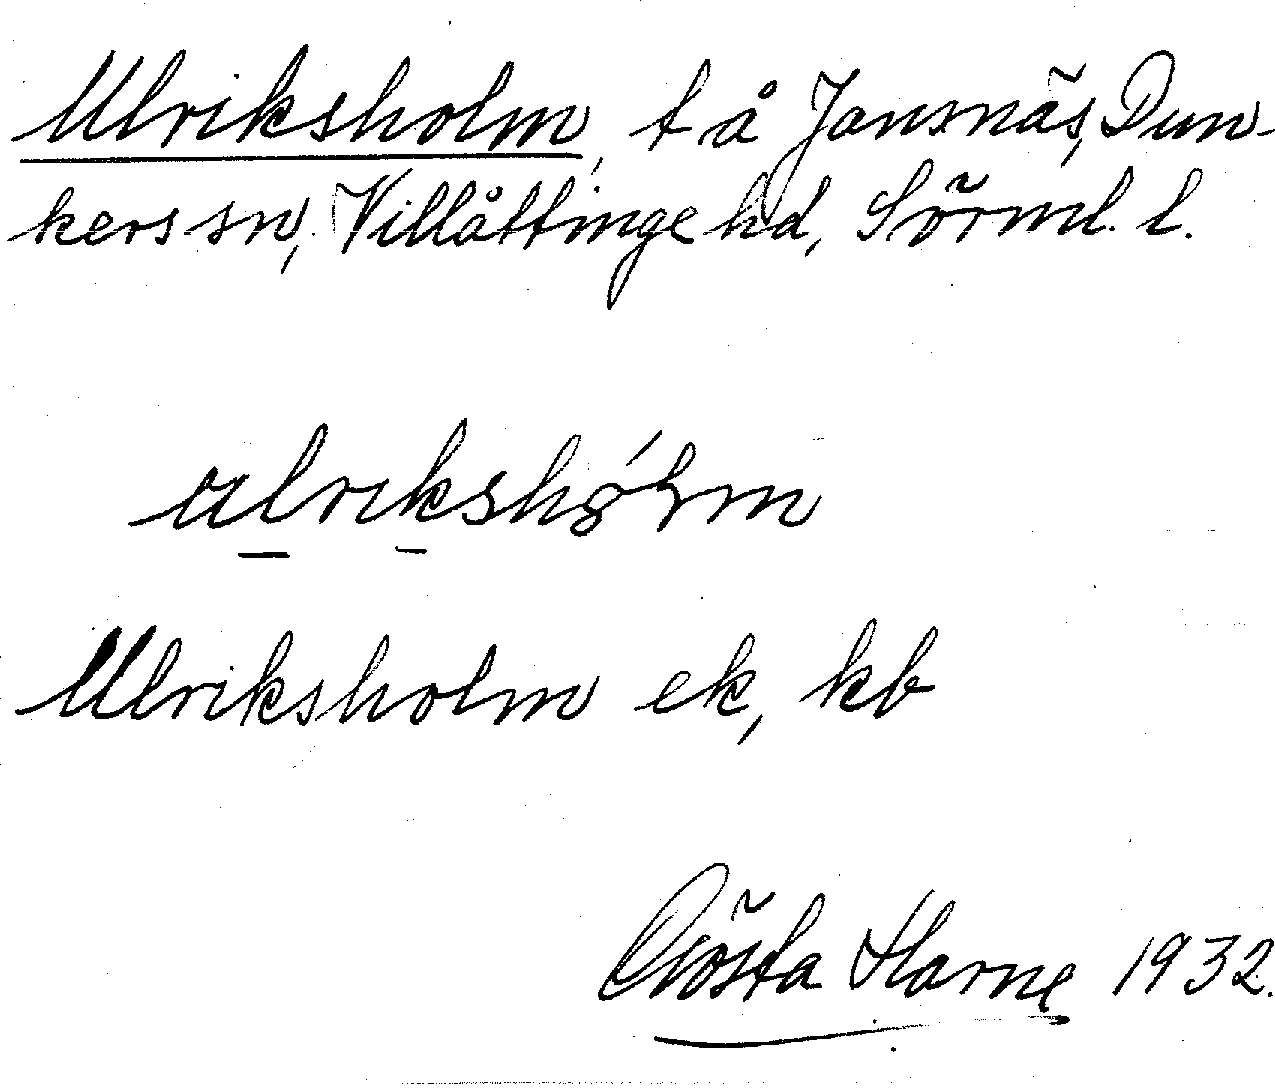 Ulriksholm, t å Jansnäs, Dun-
kers sn, Villåttinge hd, Sörml. l.
Ulriksholm ek, kb
Gösta Harne 1932.